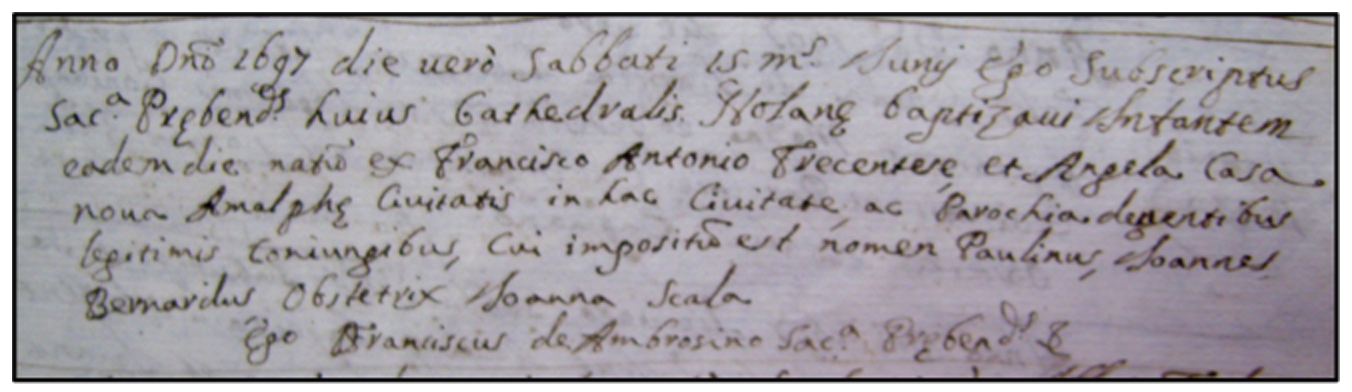 Anno Dnō 1697 die uerò Sabbati 15 m.s Iunij Ego Subscriptus
Sac.a Pręben.ds huius Cathedralis Nolanę baptizaui Infantem
eadem die natū ex Francisco Antonio Trecentese et Angela Casa
noua Amalphę Ciuitatis in hac Ciuitate, ac Parochia degentibus
legitimis Coniungibus, Cui impositū est nomen Paulinus, Ioannes,
Bernardus, Obstetrix Ioanna Scala
Ego Franciscus de Ambrosino Sac.a Pręben.ds